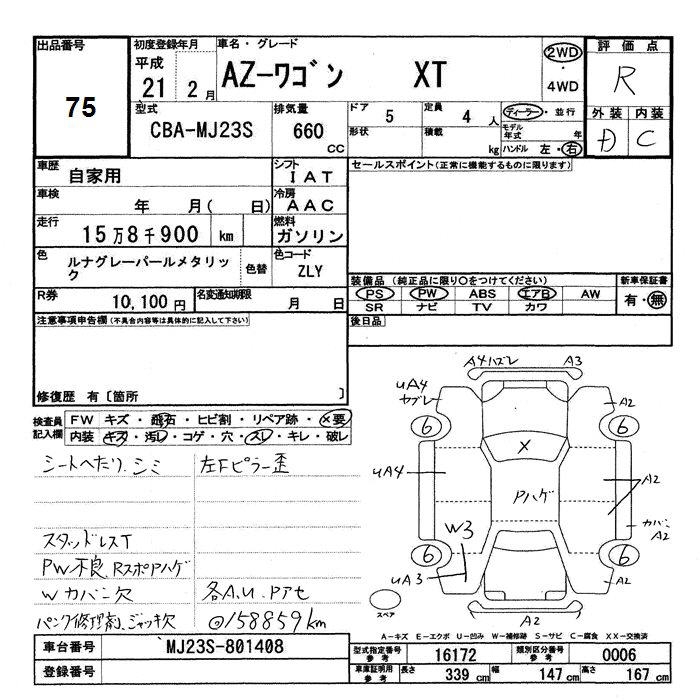 出品番号
75
初度登録年月
平成 21 2月
車名・グレード
AZーワゴン XT
2WD
・
4WD
評価点
R
型式
CBA-MJ23S
排気量
660 cc
ドア 5
定員 4人
形状
積載 kg
ディーラー・並行
モデル年式 年
ハンドル 左・右
外装 内装
D C
車歴 自家用
シフト IAT
セールスポイント(正常に機能するものに限ります)
車検 年 月( 日)
冷房 AAC
走行 15万8千900 km
燃料 ガソリン
色 ルナグレーパールメタリック
色替
色コード ZLY
装備品(純正品に限り○をつけてください)
新車保証書
PS PW ABS エアB AW
有・無
SR ナビ TV カワ
R券 10,100円
名変通知期限 月 日
後日品
注意事項申告欄(不具合内容等は具体的に記入して下さい)
修復歴 有〔箇所 〕
検査員記入欄
FW キズ・飛石・ヒビ割・リペア跡・×要
内装 キズ・汚レ・コゲ・穴・スレ・キレ・破レ
シートヘたり、シミ 左Fピラー歪
スタッドレスT
PW不良、RスポPハゲ
Wカバー欠 各A.U.Pアセ
パンク修理剤、ジャッキ欠 ◎158859km
A4ハズレ A3
uA4
ヤブレ
A2
6 6
uA4
X
Pハゲ
A2
W3
カバーA2
6 6
uA3
A2
スペア
A2
A-キズ E-エクボ U-凹み W-補修跡 S-サビ C-腐食 XX-交換済
車台番号 MJ23S-801408
登録番号
型式指定番号 参考 16172
類別区分番号 参考 0006
車庫証明用 参考 長さ 339 cm 幅 147 cm 高さ 167 cm